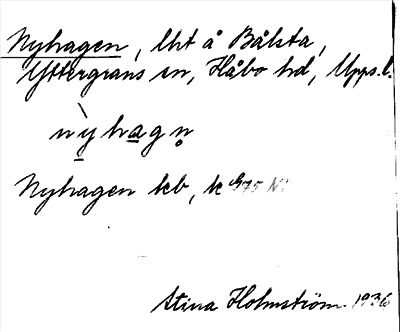 Nyhagen, lht å Bålsta,
Yttergrans sn, Håbo hd, Upps. l.
nỳhagn̥
Nyhagen kb, k 975 N
Stina Holmström 1936